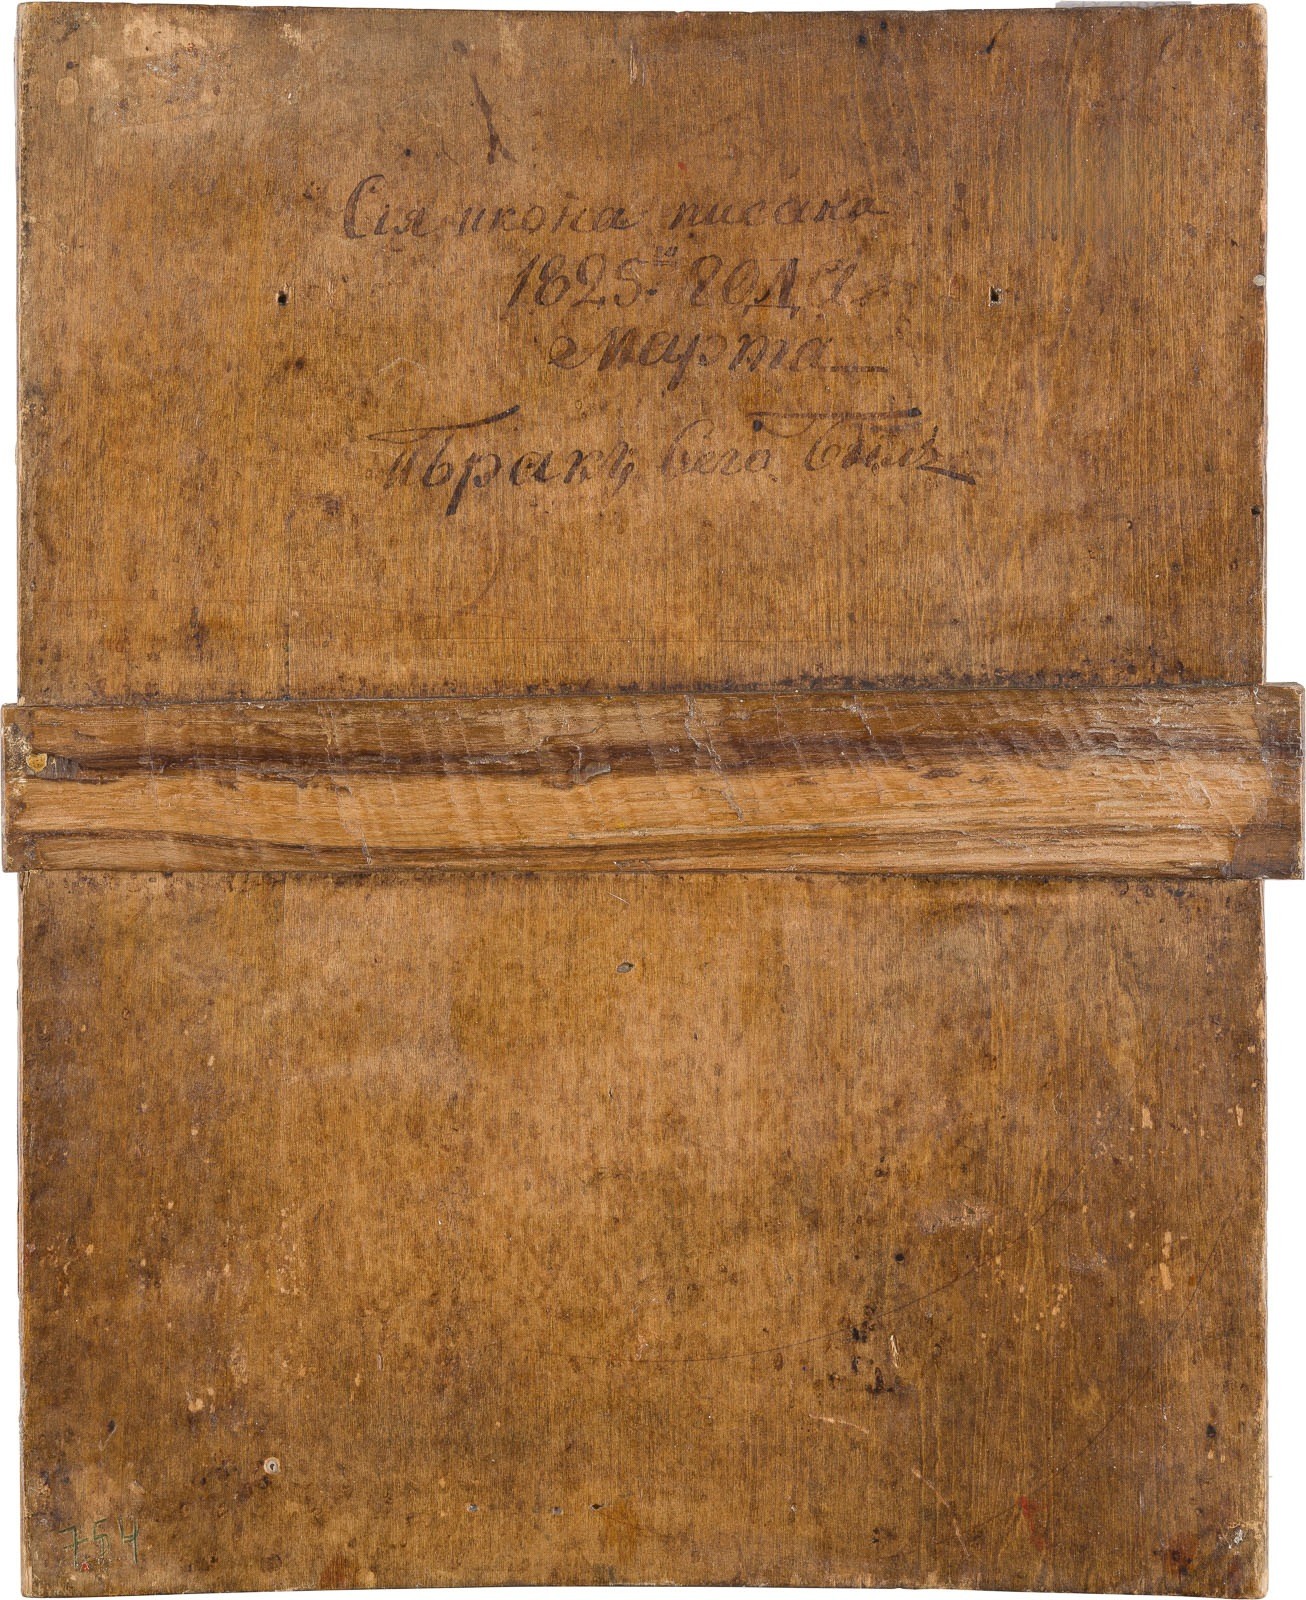 Сія икона писана
1825го года
Марта
сего
754